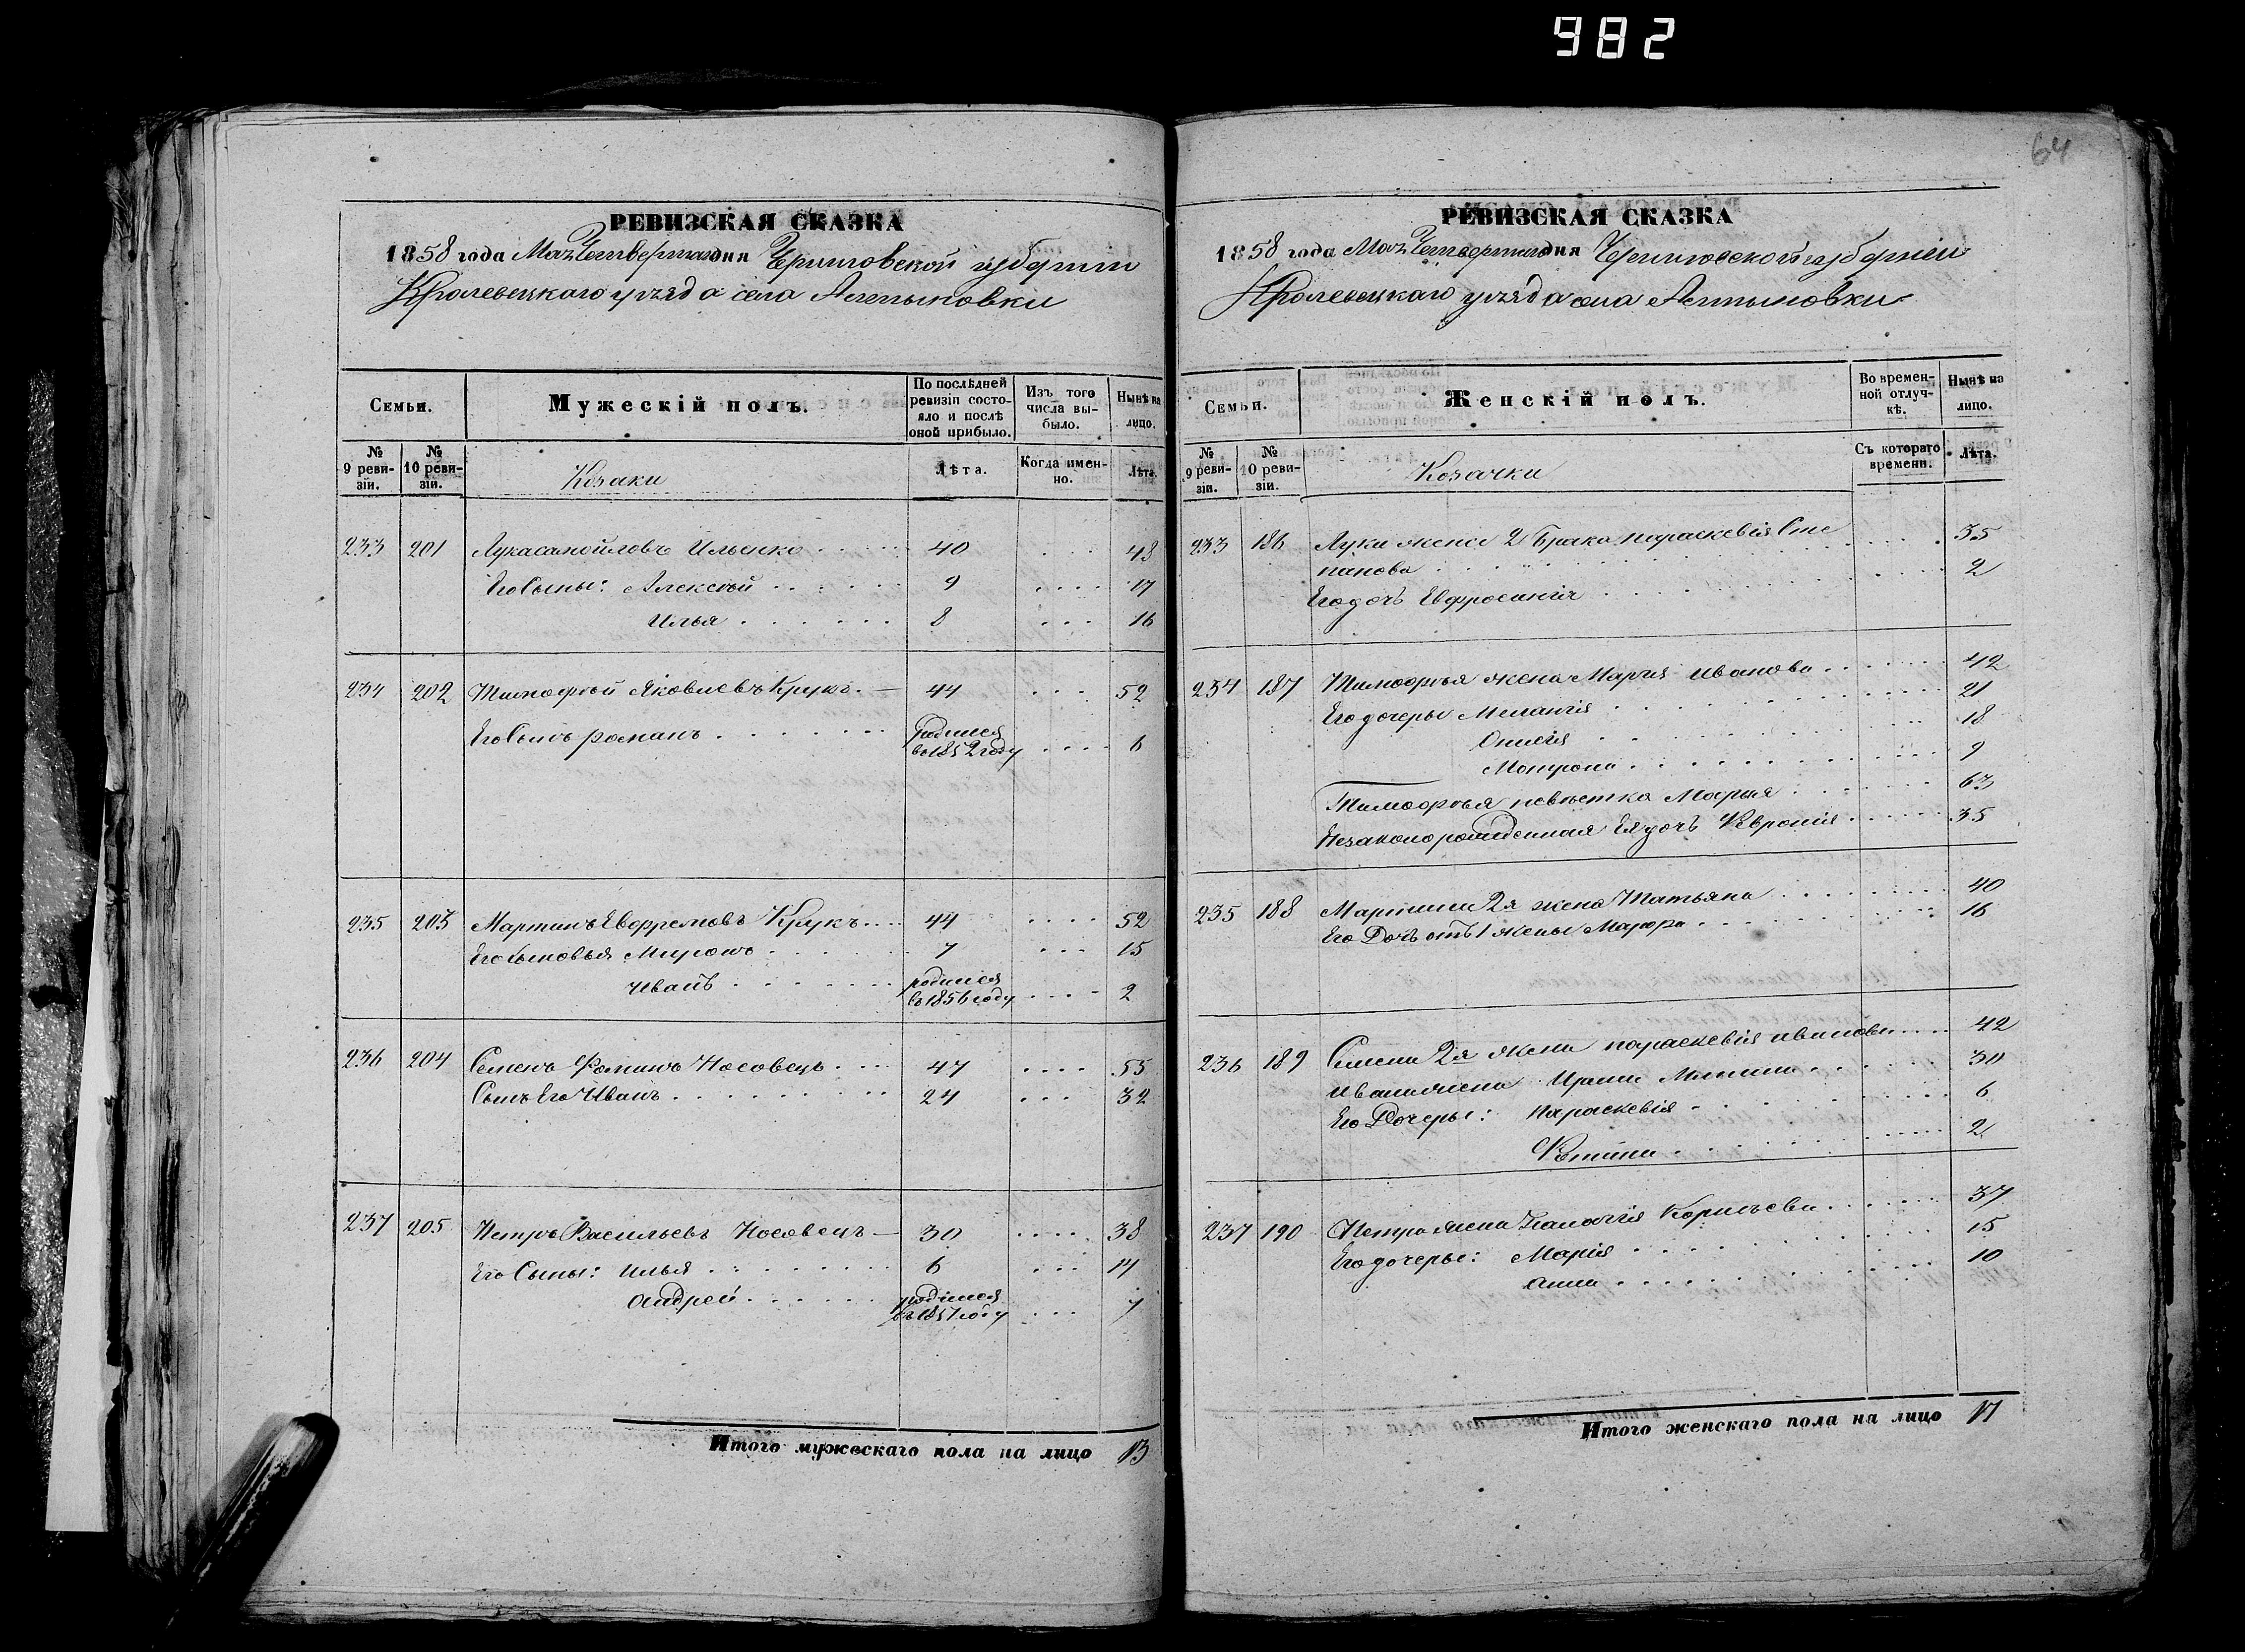 982
64
РЕВИЗСКАЯ СКАЗКА
1858 года Мая Четвертаго дня Черниговской губернии
Кролевецкаго уезда села
Семьи.
Мужескій полъ.
По послѣдней ревизіи состояло и послѣ оной прибыло.
Изъ того числа выбыло.
Нынѣ на лицо.
№ 9 ревизіи.
№ 10 ревизіи.
Козаки
Лѣта.
Когда именно.
Лѣта.
233 201 Лука Самойловъ Ильенко 40 48
Его Сыны: Алексѣй 9 17
Илья 8 16
234 202 Тимофѣй Яковлевъ Крукъ 44 52
Его Сынъ Романъ родился в 1852 году 6
235 203 Мартинъ Евфремовъ Крукъ 44 52
Его Сыновья Миронъ 7 15
Иванъ родился в 1856 году 2
236 204 Семенъ Фоминъ Носовецъ 47 55
Сынъ Его Иванъ 24 32
237 205 Петръ Васильевъ Носовецъ 30 38
Его Сыны: Илья 6 14
Андрей родился в 1851 году 7
Итого мужескаго пола на лицо 13
РЕВИЗСКАЯ СКАЗКА
1858 года Мая Четвертаго дня Черниговской губернии
Кролевецкаго уезда села
Семьи.
Женскій полъ.
Во временной отлучкѣ.
Нынѣ на лицо.
№ 9 ревизіи.
№ 10 ревизіи.
Козачки
Съ котораго времени.
Лѣта.
233 186 Луки жена 2 брака Параскевія Сте
панова 35
Его дочь Евфросинія 2
234 187 Тимофѣя жена Марія Иванова 42
Его дочеры Меланія 21
18
Мотрона 9
Тимофѣя невѣстка Марья 63
Незаконорожденная Ея дочь 35
235 188 Мартина 2я жена Татьяна 40
Его Дочь отъ 1 жены 16
236 189 Семена 2я жена Параскевія Иванова 42
Ивана жена Ирина 30
Его Дочеры: Параскевія 6
2
237 190 Петра жена 37
Его дочеры: Марія 15
Анна 10
Итого женскаго пола на лицо 17